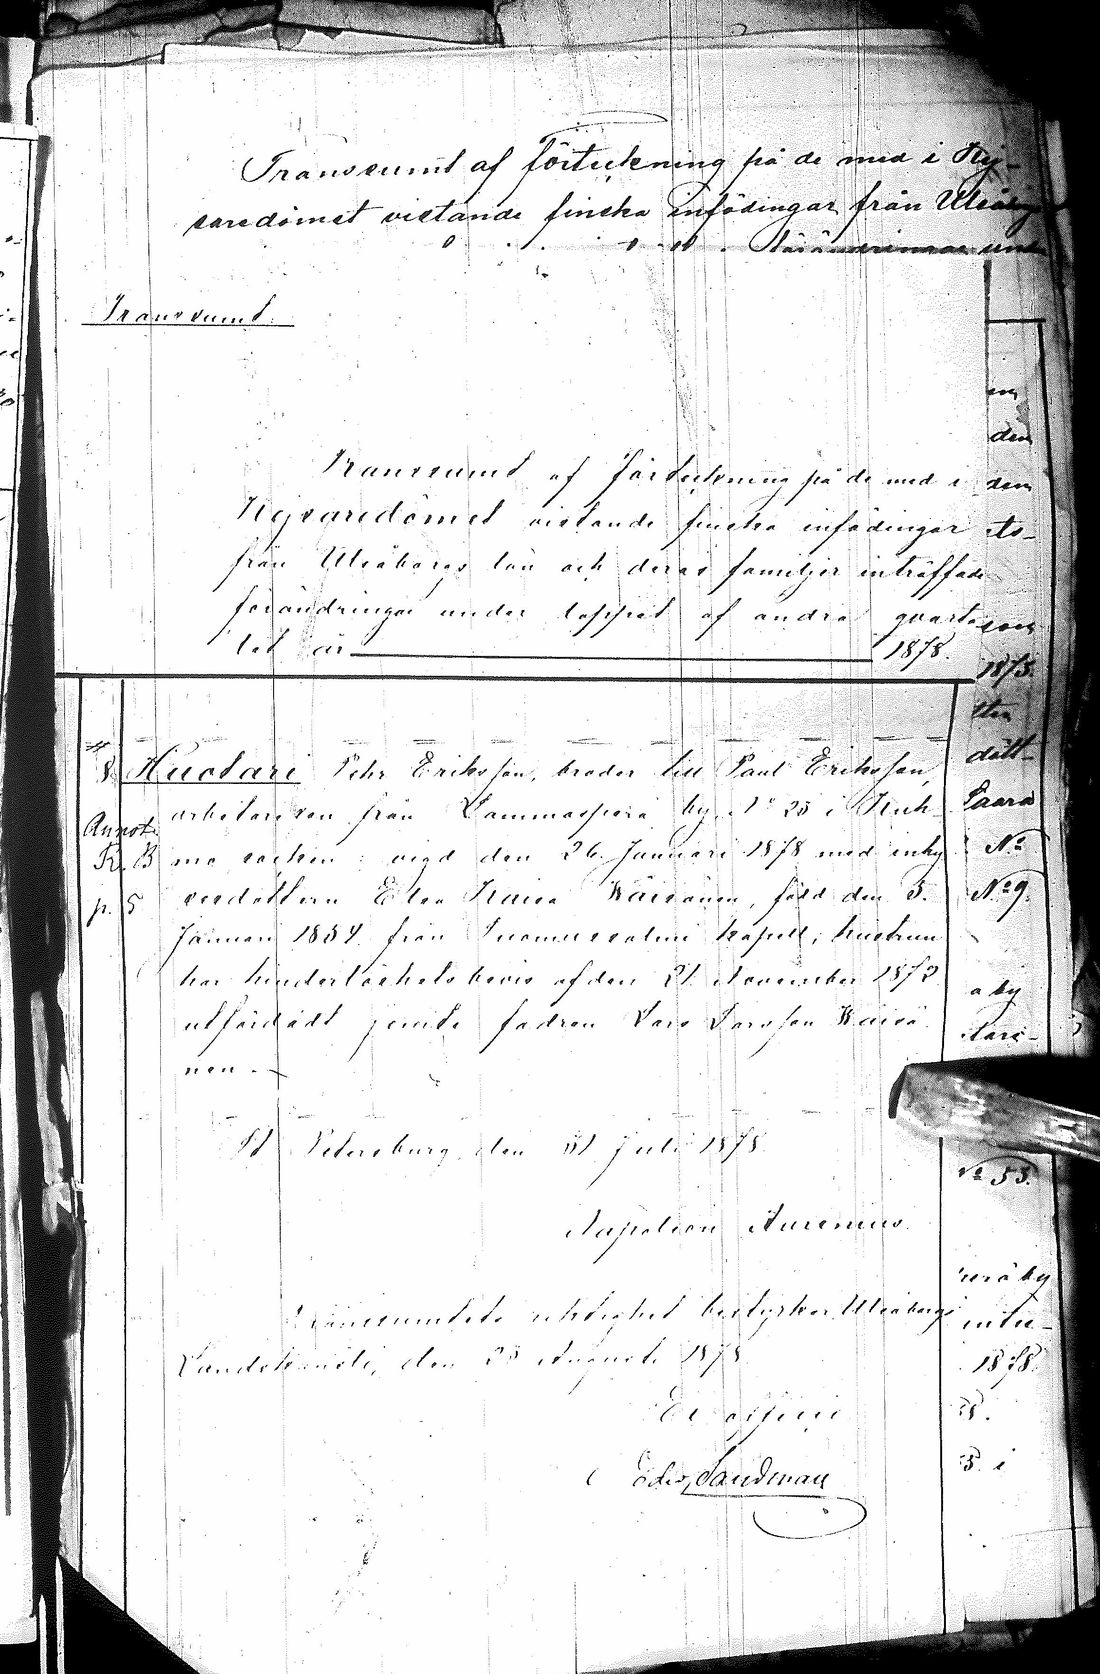 Transsumt af förteckning på de med i Kej-
saredömet vistande finska infödingar från Uleåborgs
förändringar und
Transsumt
Transsumt af förteckning på de med i
Kejsaredömet vistande finska infödingar
från Uleåborgs län och deras familjer inträffade
förändringar under loppet af andra qvarta
let år 1878.
8 Huotari Pehr Eriksson, broder till Paul Eriksson,
arbetareson från Lammasperä by No 25 i Kuh-
Annot.
K. B mo socken: vigd den 26 Januari 1878 med inhy
p. 5 sesdottern Elsa Kaisa Wäisänen, född den 5.
Januari 1854 från Suomussalmi kapell, hustrun
har hinderlöshetsbevis af den 21 November 1872
utfärdadt jemte fadren Lars Larsson Wäisä
nen.
St Petersburg den 31 Juli 1878
Napoleon Aurenius
Transsumtets riktighet bestyrker Uleåborgs
Landskansli, den 28 Augusti 1878
Ex officio
Edv. Sandman
den
den
1878.
dott-
Laara
No
No 9.
a by
No 53.
perä by
1878
5 i